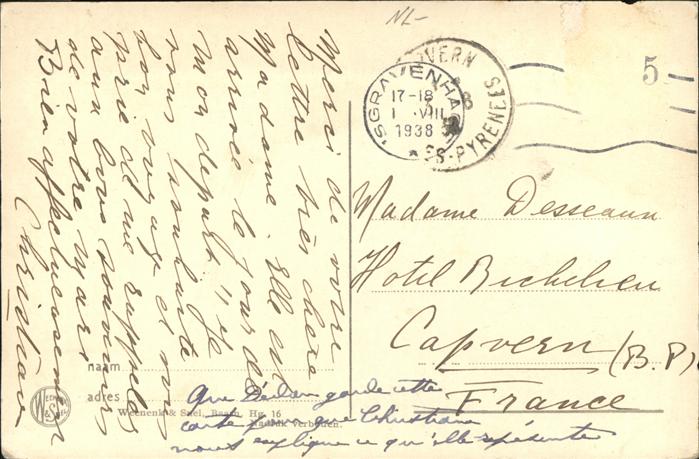 NL-
5
CAPVERN
HTES-PYRENEES
'SGRAVENHAGE
17-18
1 VIII
1938
Merci de votre
lettre très chère
Madame. Elle est
arrivée le jour de
mon départ. Je
vous souhaite un
bon voyage et vous
prie de me rappeler
aux bons souvenirs
de votre mari
Bien affectueusement
Christiane
Madame Desseaux
Hotel Richelieu
Capvern (B.P)
France
naam
adres
WEENENK & SNEL
Weenenk & Snel, Baarn, Hg. 16
Nadruk verboden.
Que garde cette
carte pour que Christiane
nous explique ce qu'elle représente